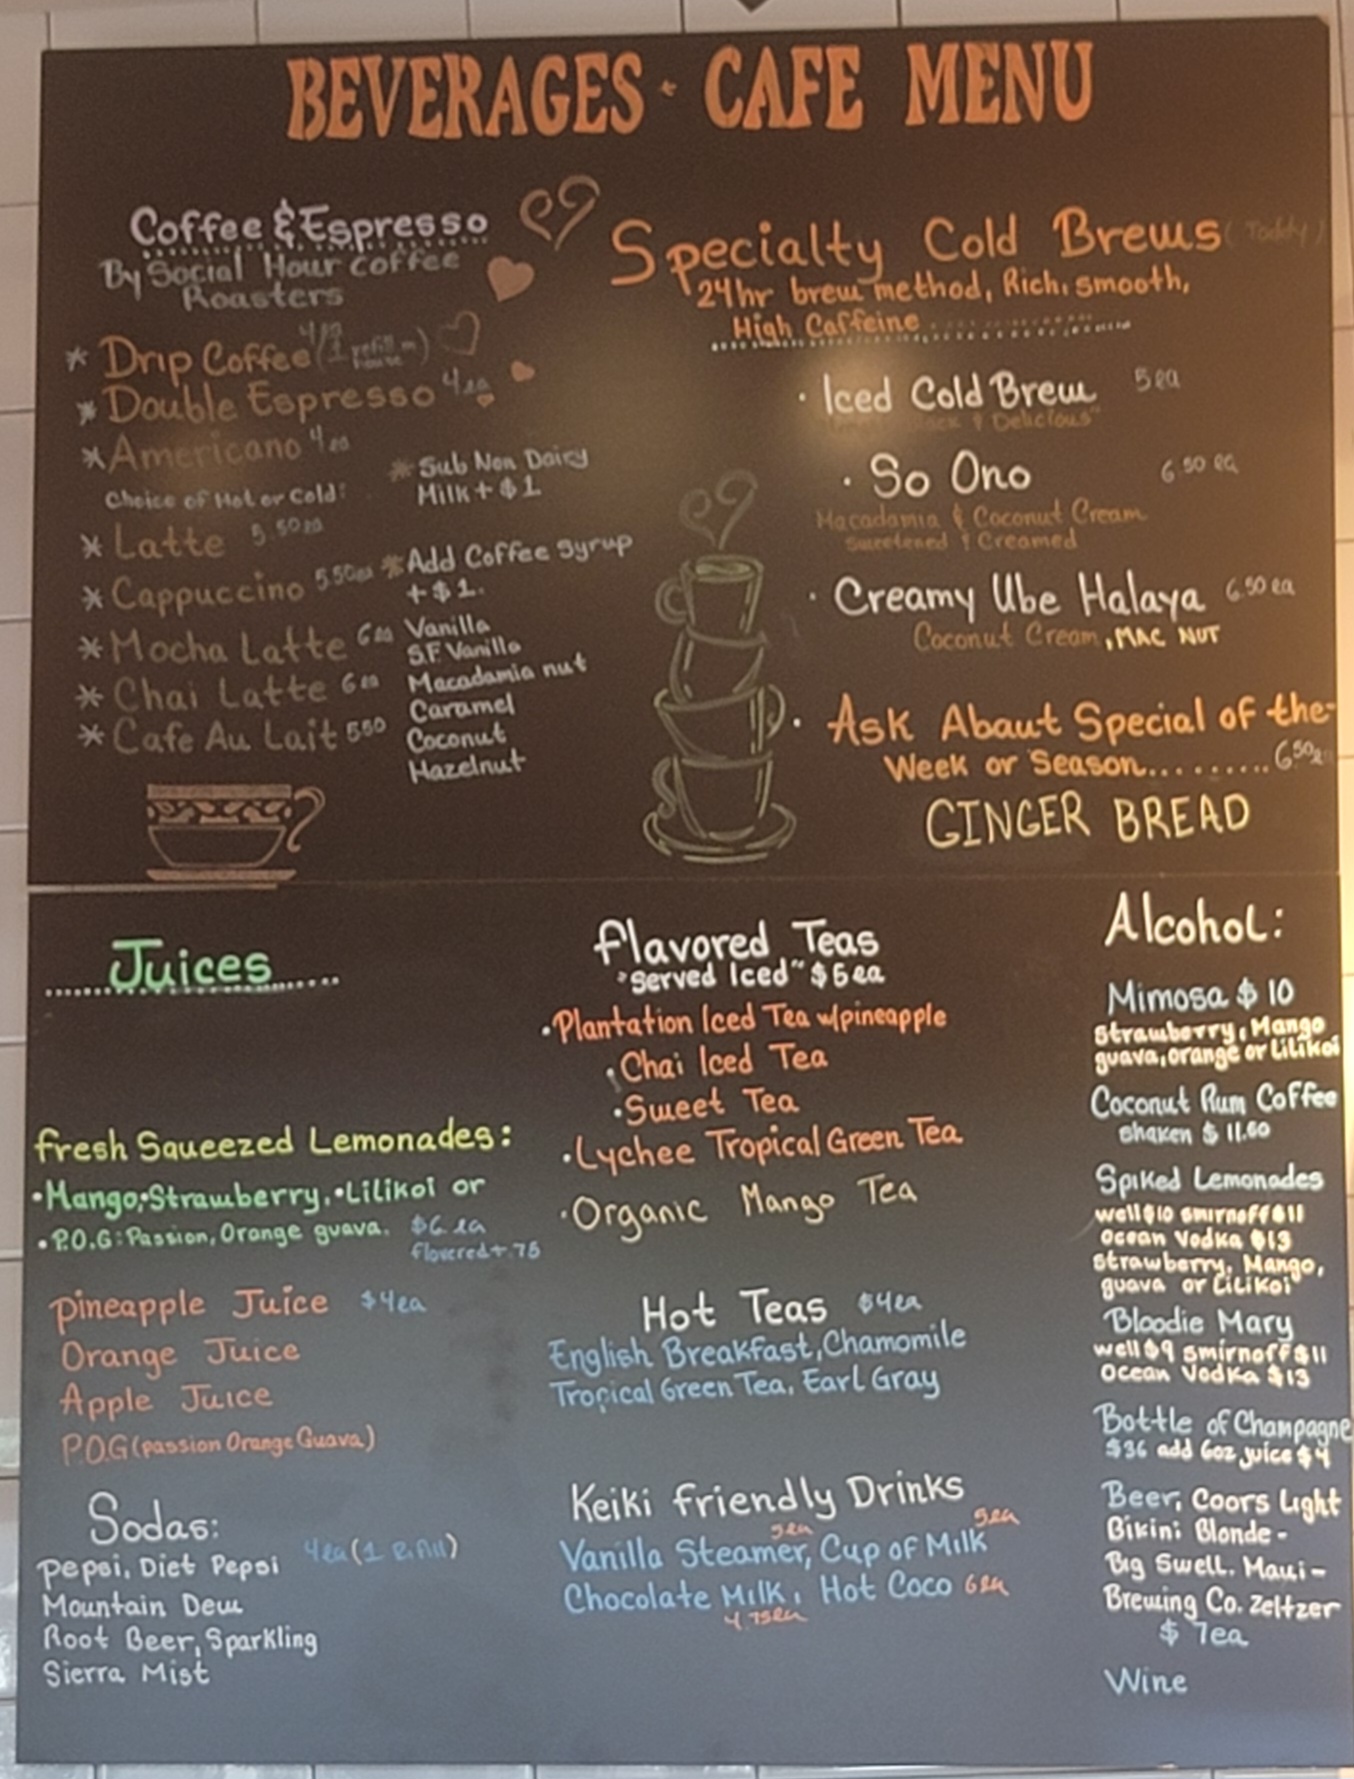 BEVERAGES · CAFE MENU
Coffee & Espresso
By Social Hour Coffee
Roasters
* Drip Coffee (1 refill in house)
* Double Espresso 4ea
* Americano 4ea
Choice of Hot or Cold:
* Latte 5.50ea
* Cappuccino 5.50ea
* Mocha Latte 6ea
* Chai Latte 6ea
* Cafe Au Lait 550
* Sub Non Dairy
Milk + $1
* Add Coffee Syrup
+ $1.
Vanilla
S.F. Vanilla
Macadamia nut
Caramel
Coconut
Hazelnut
Specialty Cold Brews (Toddy)
24hr brew method, Rich, smooth,
High Caffeine
· Iced Cold Brew 5ea
& Delicious"
· So Ono 6.50 ea
Macadamia & Coconut Cream
Sweetened & Creamed
· Creamy Ube Halaya 6.50 ea
Coconut Cream, MAC NUT
· Ask Abaut Special of the-
Week or Season.......... 650
GINGER BREAD
Juices
Fresh Squeezed Lemonades:
•Mango,•Strawberry,•Lilikoi or
•P.O.G: Passion, Orange guava. $6 ea
flavored+.75
Pineapple Juice $4ea
Orange Juice
Apple Juice
P.O.G (passion Orange Guava)
Sodas:
4ea (1 Refill)
Pepsi, Diet Pepsi
Mountain Dew
Root Beer, Sparkling
Sierra Mist
Flavored Teas
"Served Iced" $5ea
•Plantation Iced Tea w/pineapple
•Chai Iced Tea
•Sweet Tea
•Lychee Tropical Green Tea
•Organic Mango Tea
Hot Teas $4ea
English Breakfast, Chamomile
Tropical Green Tea, Earl Gray
Keiki Friendly Drinks
5ea 5ea
Vanilla Steamer, Cup of Milk
Chocolate Milk, Hot Coco 6ea
4.75ea
Alcohol:
Mimosa $10
Strawberry, Mango
guava, orange or Lilikoi
Coconut Rum Coffee
shaken $11.50
Spiked Lemonades
well $10 smirnoff $11
Ocean Vodka $13
Strawberry, Mango,
guava or Lilikoi
Bloodie Mary
well $9 smirnoff $11
Ocean Vodka $13
Bottle of Champagne
$36 add 6oz juice $4
Beer, Coors Light
Bikini Blonde -
Big Swell. Maui -
Brewing Co. Zeltzer
$ 7ea
Wine